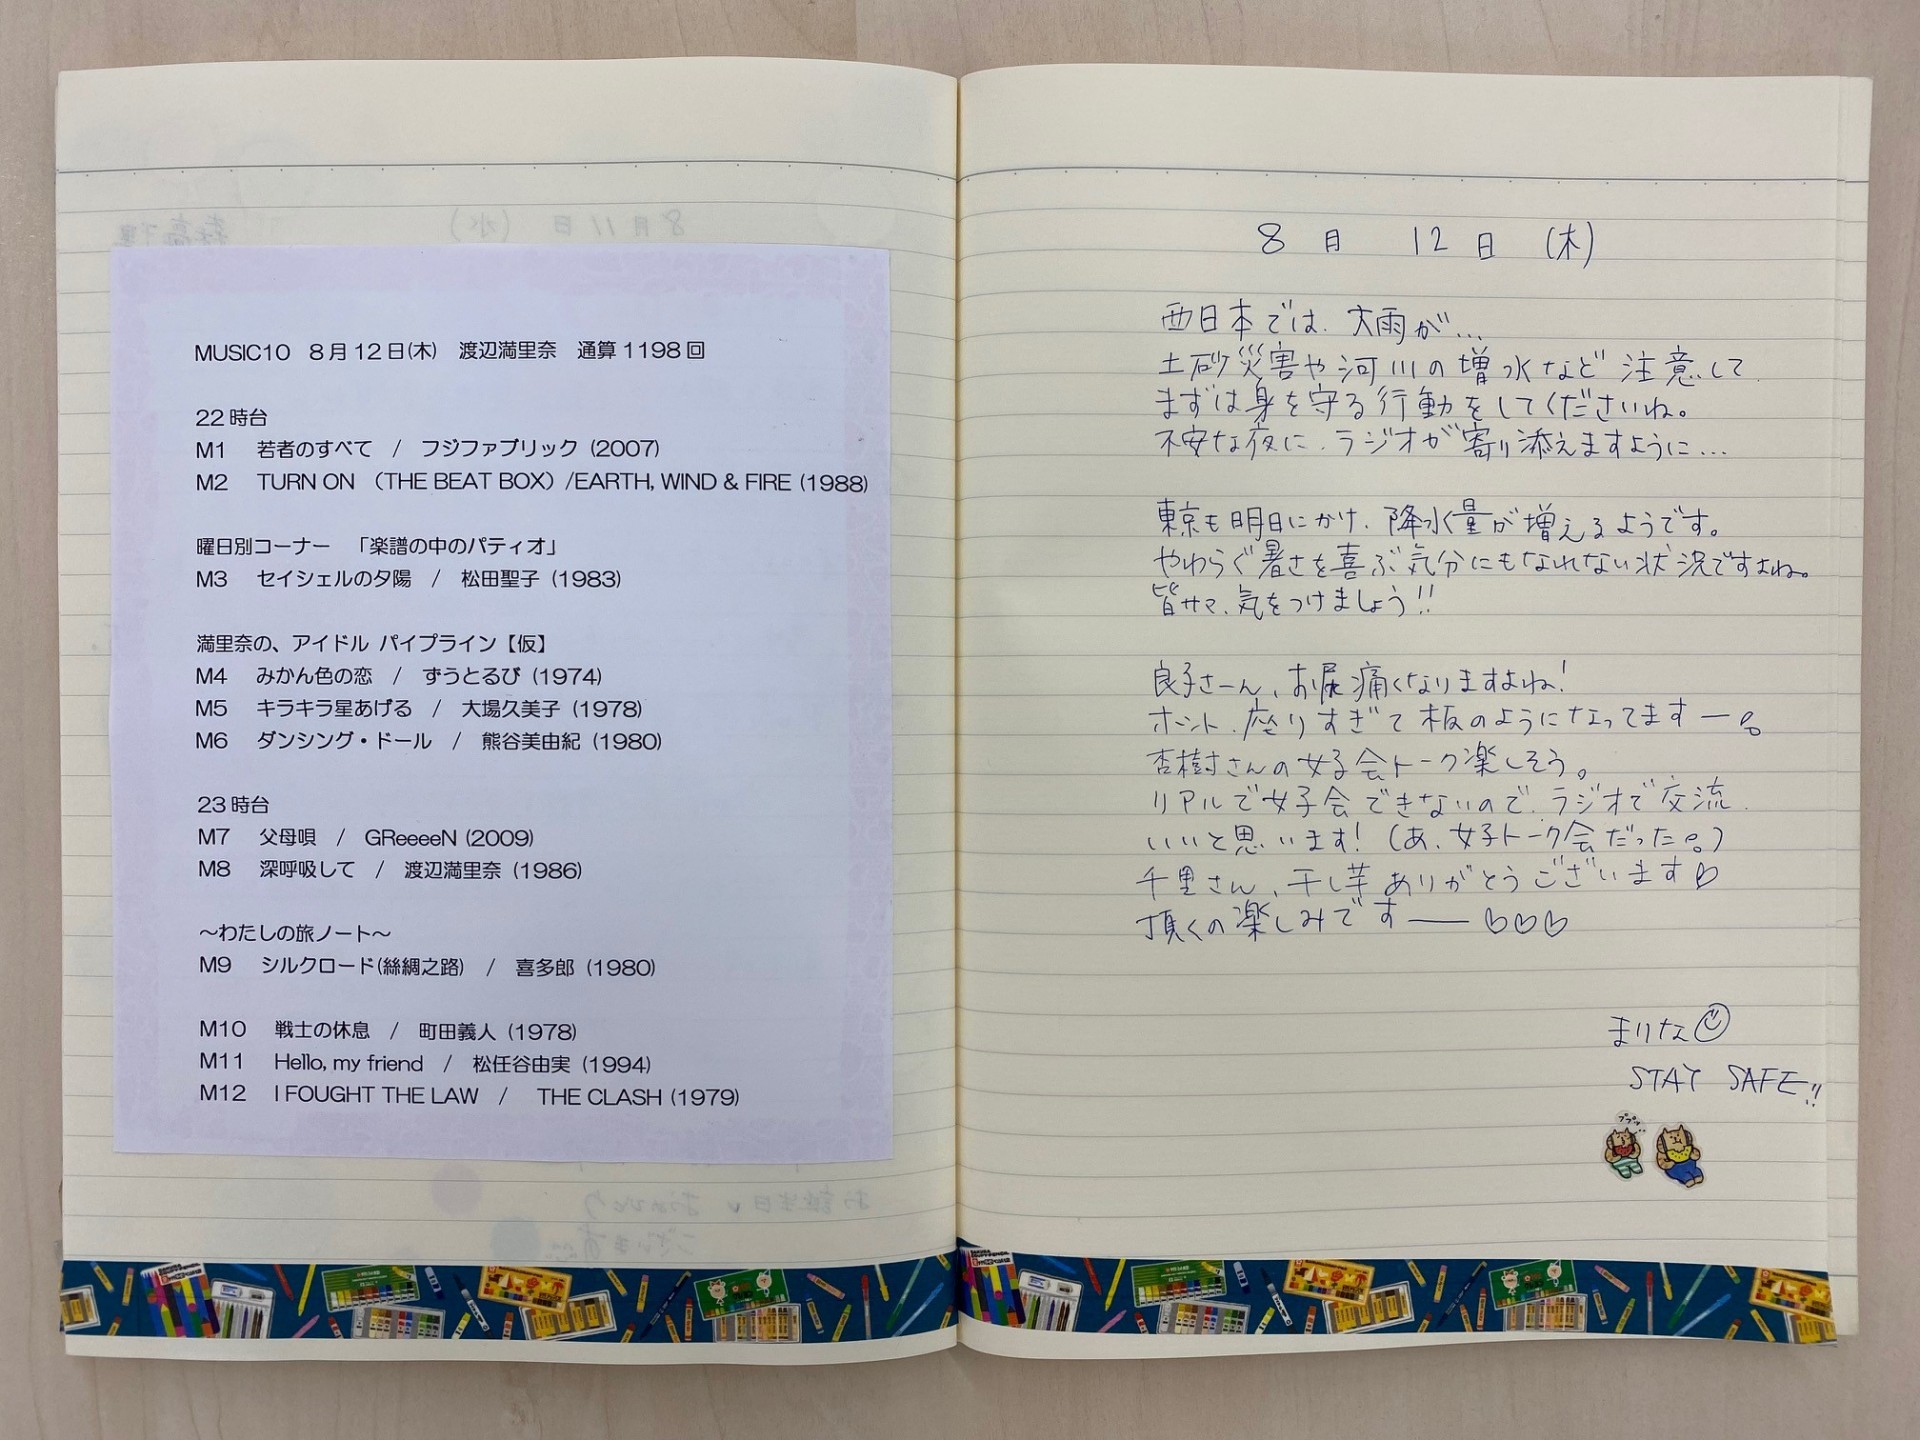 MUSIC10 8月12日(木) 渡辺満里奈 通算1198回
22時台
M1 若者のすべて / フジファブリック (2007)
M2 TURN ON （THE BEAT BOX）/EARTH, WIND & FIRE (1988)
曜日別コーナー 「楽譜の中のパティオ」
M3 セイシェルの夕陽 / 松田聖子 (1983)
満里奈の、アイドル パイプライン【仮】
M4 みかん色の恋 / ずうとるび (1974)
M5 キラキラ星あげる / 大場久美子 (1978)
M6 ダンシング・ドール / 熊谷美由紀 (1980)
23時台
M7 父母唄 / GReeeeN (2009)
M8 深呼吸して / 渡辺満里奈 (1986)
～わたしの旅ノート～
M9 シルクロード(絲綢之路) / 喜多郎 (1980)
M10 戦士の休息 / 町田義人 (1978)
M11 Hello, my friend / 松任谷由実 (1994)
M12 I FOUGHT THE LAW / THE CLASH (1979)
8月 12日 (木)
西日本では、大雨が…
土砂災害や河川の増水など注意して
まずは身を守る行動をしてくださいね。
不安な夜に、ラジオが寄り添えますように…
東京も明日にかけ、降水量が増えるようです。
やわらぐ暑さを喜ぶ気分にもなれない状況ですよね。
皆サマ、気をつけましょう!!
良子さーん、お尻痛くなりますよね!
ホント、座りすぎて板のようになってますー。
杏樹さんの女子会トーク楽しそう。
リアルで女子会できないので、ラジオで交流
いいと思います! (あ、女子トーク会だった。)
千里さん、干し芋ありがとうございます♡
頂くの楽しみですー♡♡♡
まりな
STAY SAFE!!